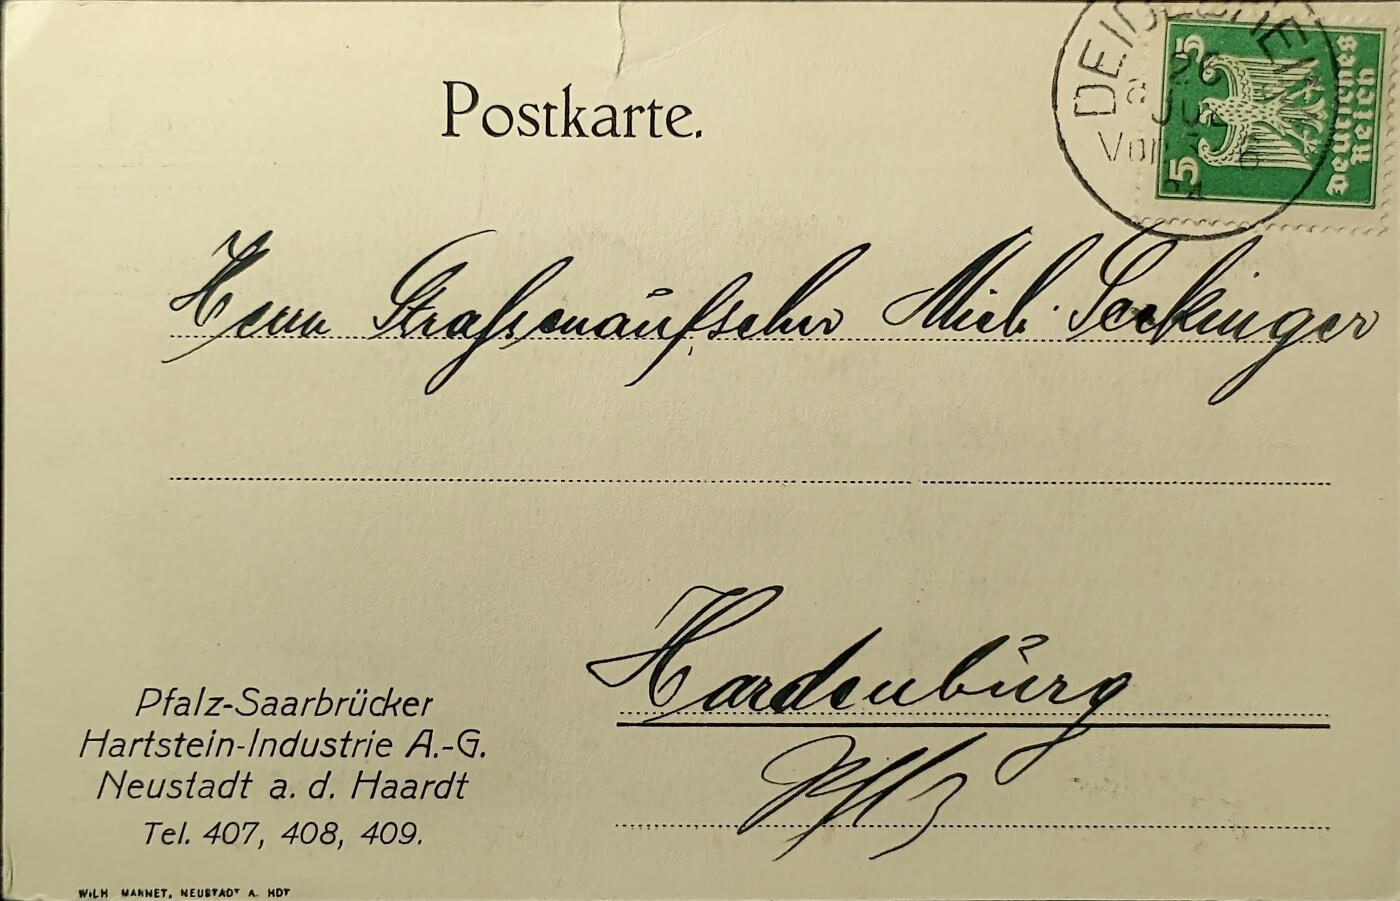 Postkarte.
DEIDESHEIM
26
JUL
Vor
24
5
5
Deutsches
Reich
Herrn Straßenaufseher Mich. Seckinger
Hardenburg
Pflz
Pfalz-Saarbrücker
Hartstein-Industrie A.-G.
Neustadt a. d. Haardt
Tel. 407, 408, 409.
WILH. MARNET, NEUSTADT A. HDT